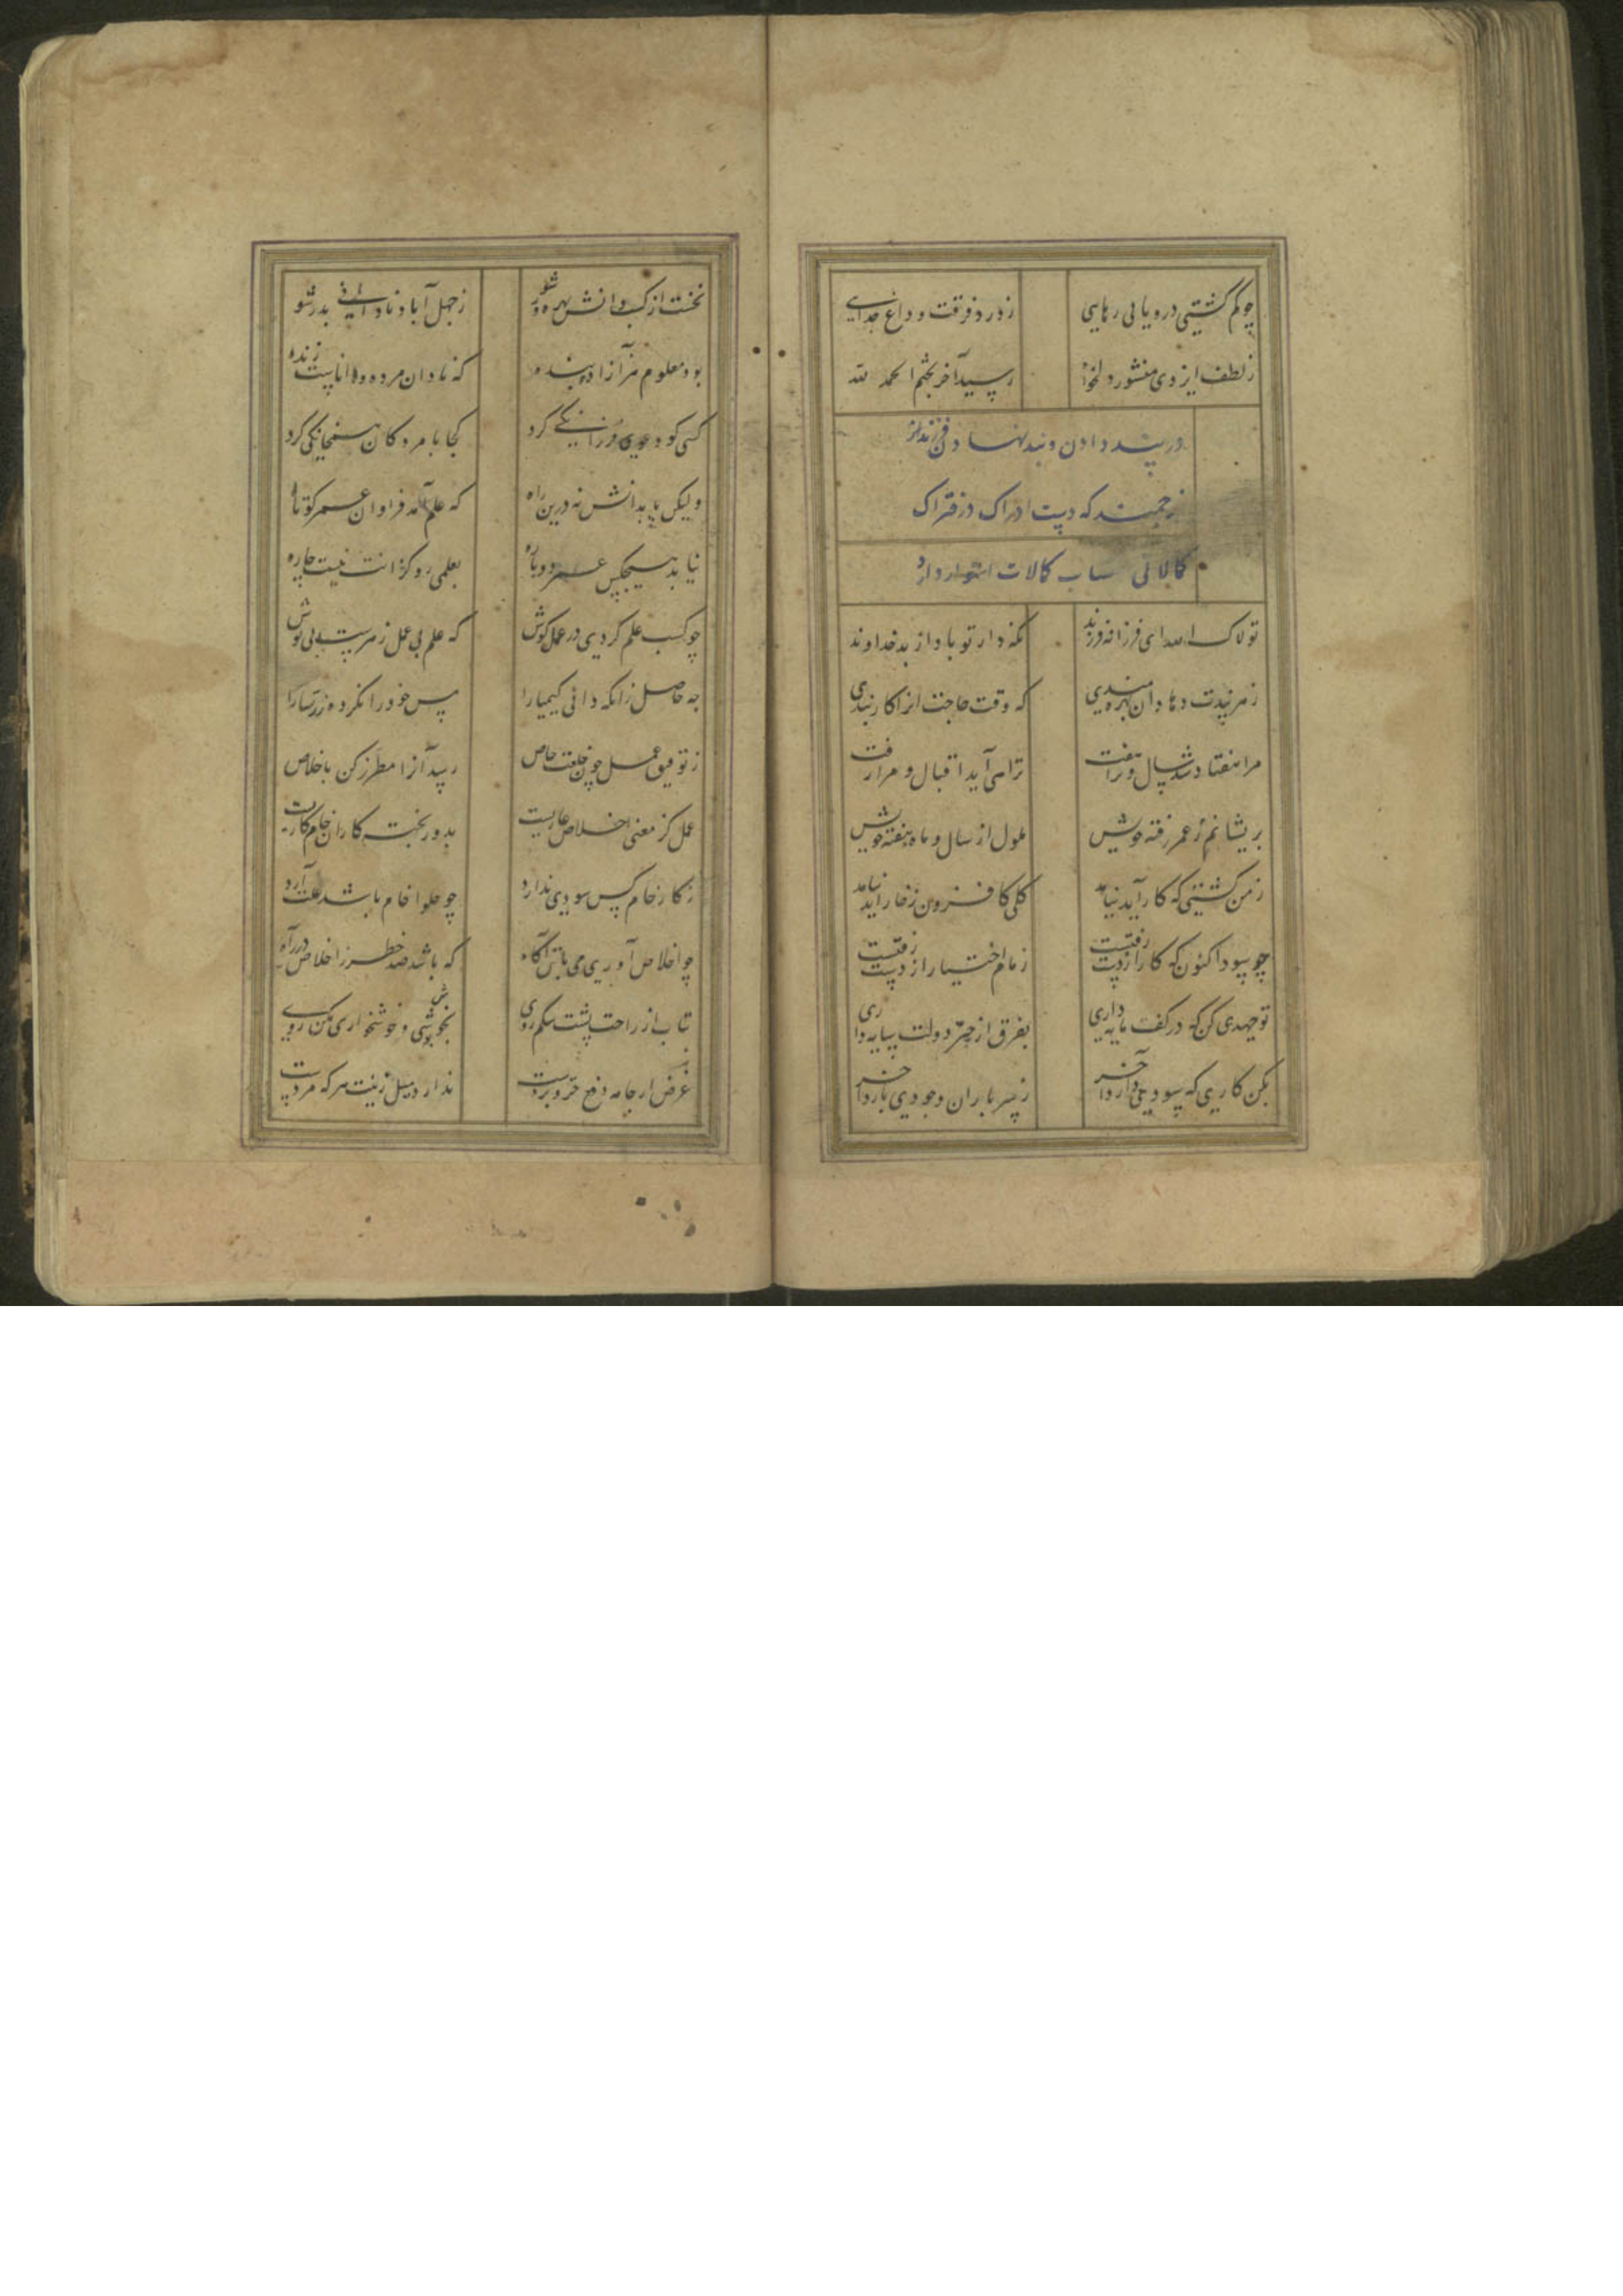 چو گم گشتی در و یابی رهایی
ز درد فرقت و داغ جدایی
ز لطف ایزدی منشور دلخواه
رسید آخر بختم الحمد لله
در پند دادن و بند نهادن فرزند
ارجمند که دست ادراک در فتراک
کمالات استوار دارد
تولاک الله ای فرزانه فرزند
نگه دار تو باد از بد خداوند
ز هر پندت دهاد آن بهره مندی
که وقت حاجت آنرا کار بندی
مرا هفتاد شد سال و ترا هفت
ترا می آید اقبال و مرا رفت
پریشانم ز عمر رفته خویش
ملول از سال و ماه و هفته خویش
ز من کشتی که کار آید نیامد
گلی کافزون ز خار آید نیامد
چو سود اکنون که کار از دست رفتست
زمام اختیار از دست رفتست
تو جهدی کن که در کف مایه داری
بفرق از چتر دولت سایه داری
بکن کاری که سودی دارد آخر
ز سر باران جودی بارد آخر
نخست از کسب دانش بهره ور شو
ز جهل آباد نادانی بدر شو
بود معلوم هر آزاد و بنده
که نادان مرده و داناست زنده
کسی کو دعوی فرزانگی کرد
کجا با مردگان همخانگی کرد
ولیکن پا بدانش نه درین راه
که علم آمد فراوان عمر کوتاه
نیابد هیچکس عمر دوباره
بعلمی رو کز آنت نیست چاره
چو کسب علم کردی در عمل کوش
که علم بی عمل زهریست بی نوش
چه حاصل زانکه دانی کیمیا را
مس خود را نکرده زر سارا
ز توفیق عمل چون خلعت خاص
رسید آنرا مطرز کن باخلاص
عمل کز معنی اخلاص عاریست
بدور پخته کاران خام کاریست
ز کار خام کس سودی ندارد
چو حلوا خام باشد علت آرد
چو اخلاص آوری می باش آگاه
که باشد صد خطر ز اخلاص در راه
متاب از راحت پشت شکم روی
بخوش پوشی و خوشخواری مکن روی
غرض از جامه دفع حر و بردست
ندارد میل زینت هر که مردست